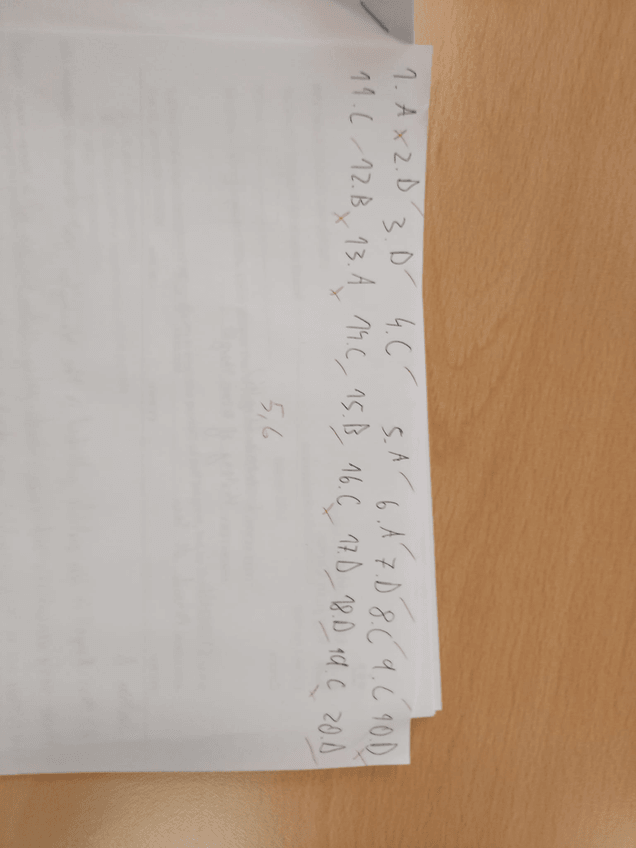 1. A x 2. D 3. D 4. C 5. A 6. A 7. D 8. C 9. C 10. D
11. C 12. B x 13. A x 14. C 15. B 16. C x 17. D 18. D 19. C x 20. D
5,6